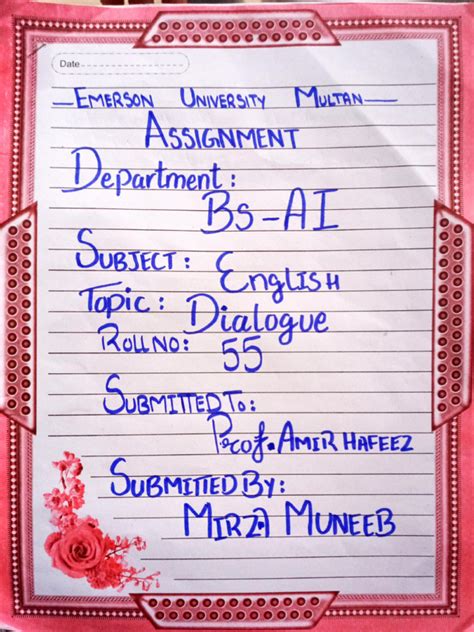 Date
EMERSON UNIVERSITY MULTAN
ASSIGNMENT
Department:
BS-AI
SUBJECT: English
Topic: Dialogue
ROLL NO: 55
SUBMITTED TO:
Prof. AMIR HAFEEZ
SUBMITTED BY:
MIRZA MUNEEB